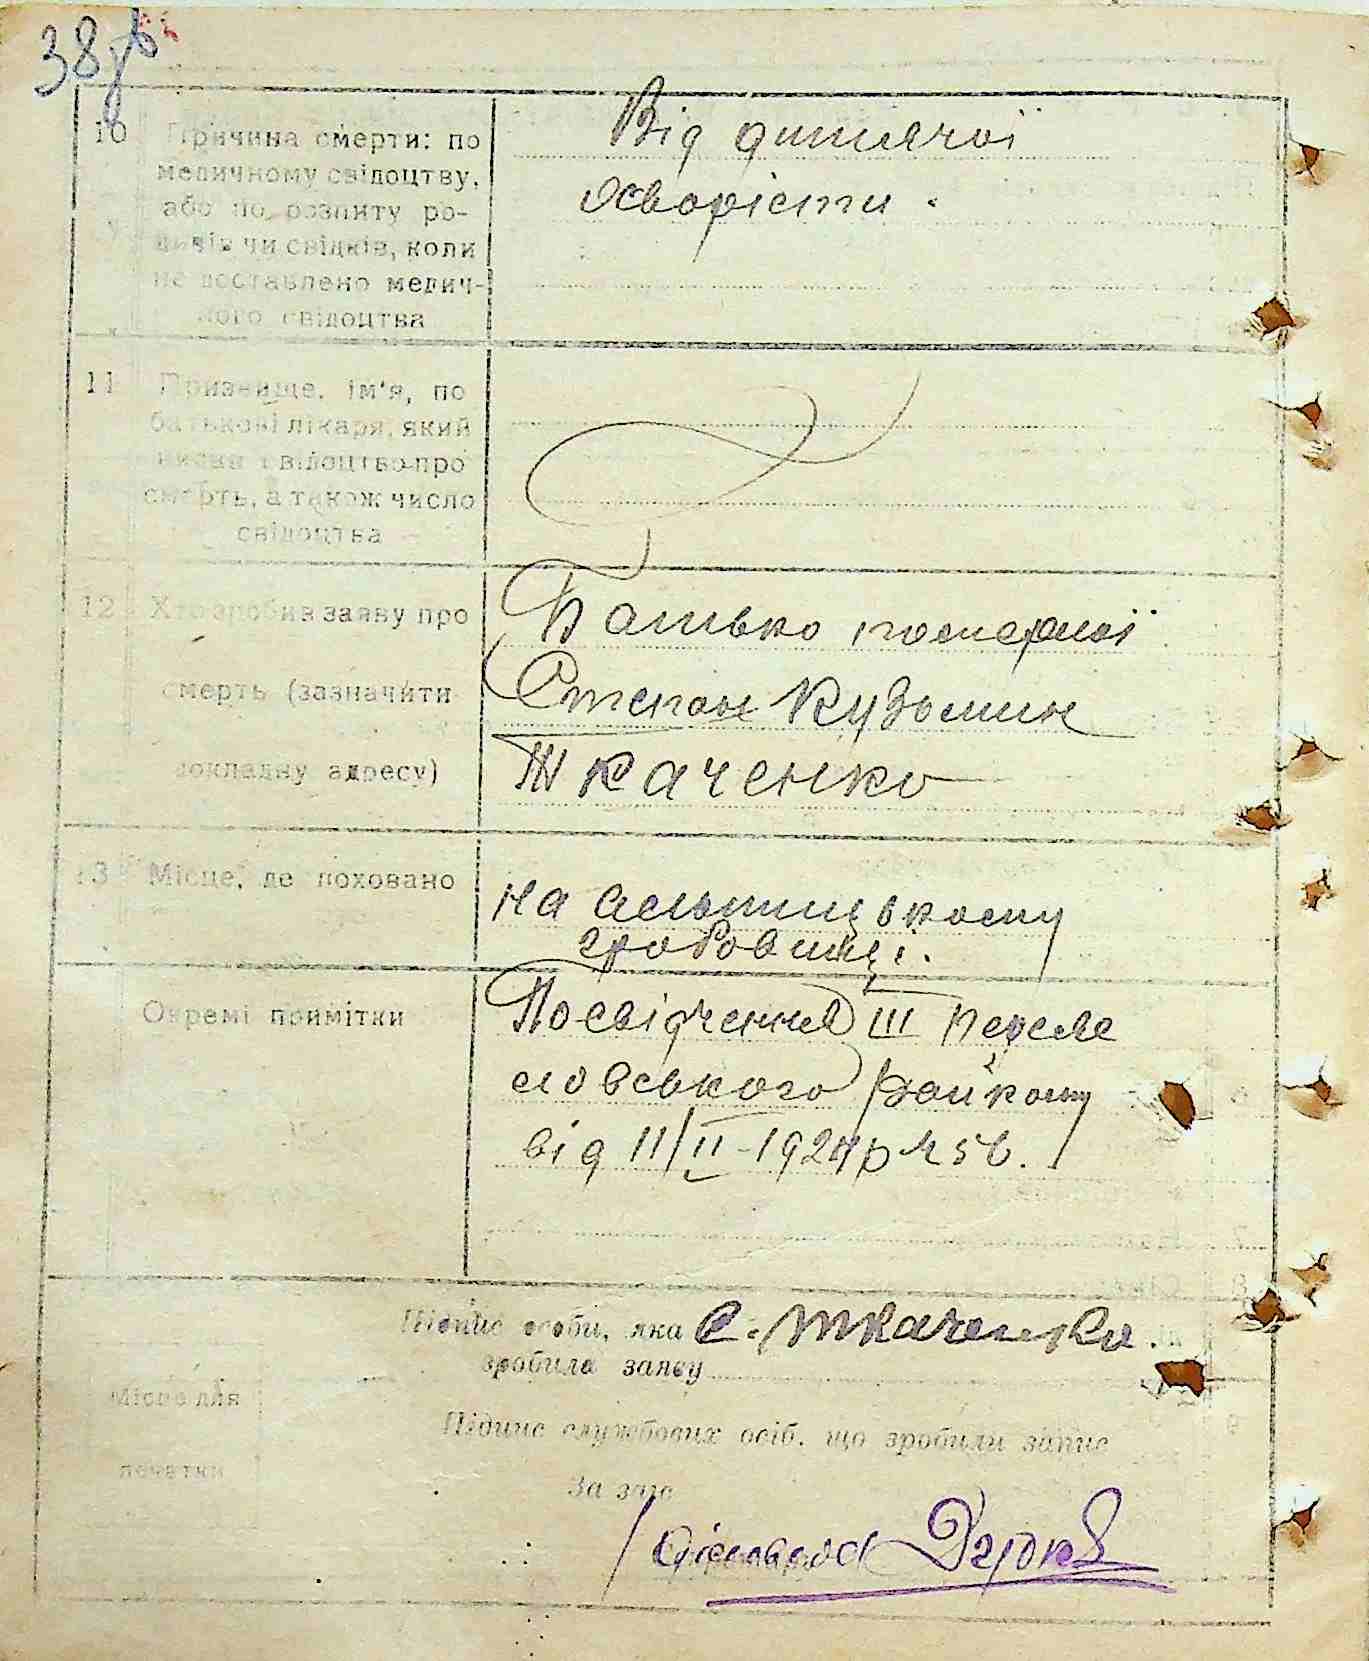 38
10
Причина смерти: по
медичному свідоцтву,
або по розпиту ро-
дичів чи свідків, коли
не доставлено медич-
ного свідоцтва
Від дитячої
хворісти.
11
Призвище, ім'я, по
батькові лікаря, який
писав свідоцтво про
смерть, а також число
свідоцтва
12
Хто зробив заяву про
смерть (зазначити
докладну адресу)
Батько померлої
Степан Кузьмин
Ткаченко
13
Місце, де поховано
на
гробовищі.
Окремі примітки
Посвідчення III Переяс
ловського Райкому
від 11/II-1924р
Підпис особи, яка С. Ткаченко
зробила заяву
Місце для
печатки
Підпис службових осіб, що зробили запис
За загс